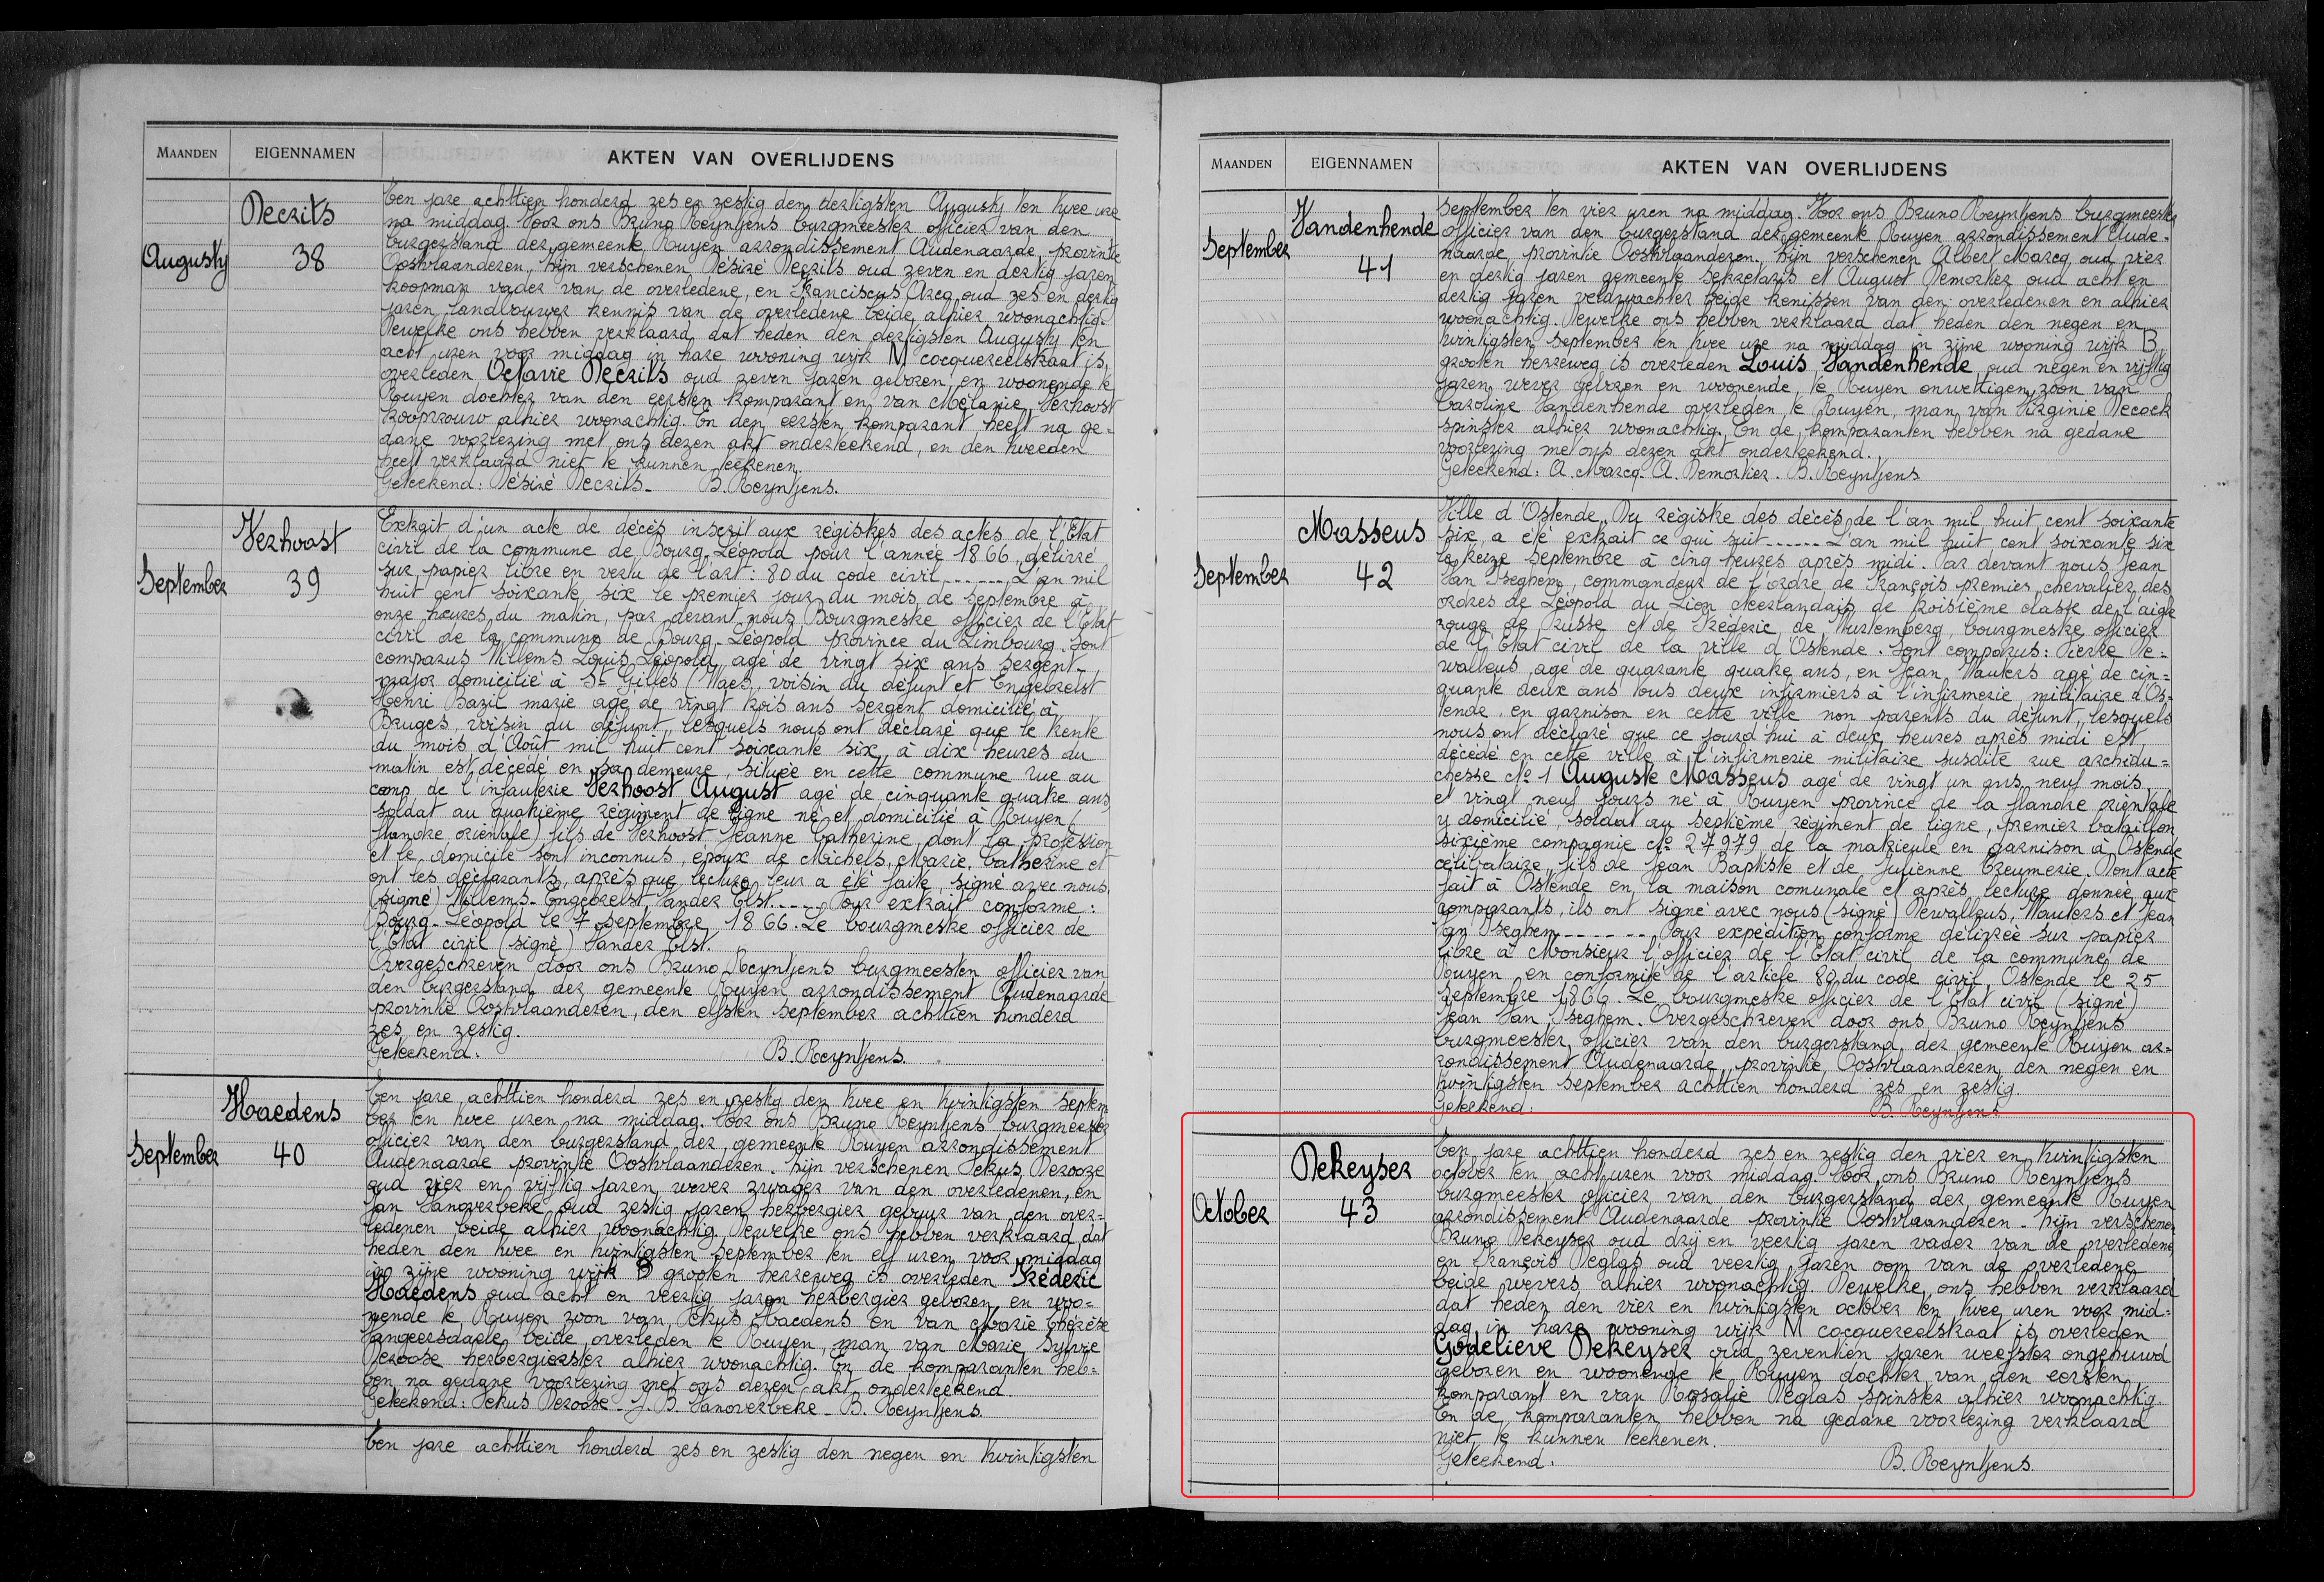 MAANDEN EIGENNAMEN AKTEN VAN OVERLIJDENS
Augusty
Decrits
38
Ten jare achttien honderd zes en zestig den dertigsten Augusty ten twee ure
na middag. Voor ons Bruno Reyntjens burgmeester officier van den
burgerstand der gemeente Ruyen arrondissement Audenaarde, provintie
Oostvlaanderen, hijn verschenen Désiré Decrits oud zeven en dertig jaren
koopman vader van de overledene, en Franciscus Arcq oud zes en dertig
jaren landbouwer kennis van de overledene beide alhier woonachtig.
Dewelke ons hebben verklaard dat heden den dertigsten Augusty ten
acht uren voor middag in hare wooning wijk M cocquereelstraat is
overleden Octavie Decrits oud zeven jaren geboren en woonende te
Ruyen dochter van den eersten komparant en van Mélanie Verhoost
koopvrouw alhier woonachtig. En den eersten komparant heeft na ge=
dane voorlezing met ons dezen akt onderteekend, en den tweeden
heeft verklaard niet te kunnen teekenen.
Geteekend: Désiré Decrits - B. Reyntjens.
September
Verhoost
39
Extrait d'un acte de décès inscrit aux régistres des actes de l'Etat
civil de la commune de Bourg-Léopold pour l'année 1866, délivré
sur papier libre en vertu de l'art: 80 du code civil ------ L'an mil
huit cent soixante six le premier jour du mois de Septembre à
onze heures du matin, par devant nous Bourgmestre officier de l'Etat
civil de la commune de Bourg-Léopold province du Limbourg. Sont
comparus Willems Louis Léopold, agé de vingt six ans sergent-
major domicilié à St Gilles (Waes, voisin du défunt et Engebrelst
Henri Bazil marié agé de vingt trois ans sergent domicilié à
Bruges, voisin du défunt, lesquels nous ont déclaré que le trente
du mois d'Août mil huit cent soixante six, à dix heures du
matin est décédé en sa demeure, située en cette commune rue au
camp de l'infanterie Verhoost August agé de cinquante quatre ans,
soldat au quatrième régiment de ligne né et domicilié à Ruyen (
flandre orientale) fils de Verhoost Jeanne Catherine, dont la profession
et le domicile sont inconnus, époux de Michels, Marie, Catherine et
ont les déclarants, après que lecture leur a été faite, signé avec nous.
(signé) Willems - Engebrelst Vander Elst ---- Pour extrait conforme:
Bourg-Léopold le 7 Septembre 1866. Le bourgmestre officier de
l'Etat civil (signé) Vander Elst.
Overgeschreven door ons Bruno Reyntjens burgmeesten officier van
den burgerstand der gemeente Ruyen arrondissement Audenaarde
provintie Oostvlaanderen, den elfsten September achttien honderd
zes en zestig.
Geteekend. B. Reyntjens.
September
Haedens
40
Ten jare achttien honderd zes en zestig den twee en twintigsten Septem
ber ten twee uren na middag. Voor ons Bruno Reyntjens burgmeester
officier van den burgerstand der gemeente Ruyen arrondissement
Audenaarde provintie Oostvlaanderen. hijn verschenen Petrus Derooze
oud vier en vijftig jaren, wever zwager van den overledenen, en
Jan Vanoverbeke oud zestig jaren herbergier gebuur van den over=
ledenen beide alhier woonachtig. Dewelke ons hebben verklaard dat
heden den twee en twintigsten September ten elf uren voor middag
in zijne wooning wijk B grooten herreweg is overleden Fréderic
Haedens oud acht en veertig jaren herbergier geboren en woo=
nende te Ruyen zoon van Petrus Haedens en van Marie Thérèse
Vangeersdaele beide overleden te Ruyen, man van Marie Sylvie
Deroose herbergierster alhier woonachtig. En de komparanten heb=
ben na gedane voorlezing met ons dezen akt onderteekend.
Geteekend: Petrus Deroose - J. B. Vanoverbeke - B. Reyntjens.
Ten jare achttien honderd zes en zestig den negen en twintigsten
MAANDEN EIGENNAMEN AKTEN VAN OVERLIJDENS
September
Vandenhende
41
September ten vier uren na middag. Voor ons Bruno Reyntjens burgmeester
officier van den burgerstand der gemeente Ruyen arrondissement Aude-
naarde, provintie Oostvlaanderen. hijn verschenen Albert Marcq oud vier
en dertig jaren gemeente Sekretaris et August Demortier oud acht en
dertig jaren veldwachter beide kenissen van den overledenen en alhier
woonachtig. Dewelke ons hebben verklaard dat heden den negen en
twintigsten September ten twee ure na middag in zijne wooning wijk B
grooten herreweg is overleden Louis Vandenhende, oud negen en vijftig
jaren wever geboren en woonende te Ruyen onwettigen zoon van
Caroline Vandenhende overleden te Ruyen, man van Virginie Decock
spinster alhier woonachtig. En de komparanten hebben na gedane
voorlezing met ons dezen akt onderteekend.
Geteekend: A. Marcq. A. Demortier. B. Reyntjens
September
Masseus
42
Ville d'Ostende. Du régistre des décès de l'an mil huit cent soixante
six, a été extrait ce qui suit ------ L'an mil huit cent soixante six
le treize Septembre à cinq heures après midi. Par devant nous Jean
Van Iseghem, commandeur de l'ordre de François premier, chevalier des
ordres de Léopold du Lion Neerlandais, de troisième classe de l'aigle
rouge de Prusse et de Fréderic de Wurtemberg, bourgmestre officier
de l'Etat civil de la ville d'Ostende. Sont comparus: Pierre De=
walleus, agé de quarante quatre ans, en Jean Wauters agé de cin=
quante deux ans tous deux infirmiers à l'infirmerie militaire d'Os=
tende, en garnison en cette ville non parents du défunt, lesquels
nous ont déclaré que ce jourd'hui à deux heures après midi est
décédé en cette ville à l'infirmerie militaire susdite rue archidu=
chesse No 1 Auguste Masseus agé de vingt un ans, neuf mois
et vingt neuf jours né à Ruyen province de la flandre orientale
y domicilié, soldat au septième régiment de ligne, premier bataillon
sixième compagnie No 27979 de la matricule en garnison à Ostende
célibataire, fils de Jean Baptiste et de Julienne Creumerie. Dont acte
fait à Ostende en la maison comunale et après lecture donnée aux
comparants, ils ont signé avec nous (signé) Dewalleus, Wauters et Jean
Van Iseghem -------- Pour expédition conforme délivrée sur papier
libre à Monsieur l'officier de l'Etat civil de la commune de
Ruyen en conformité de l'article 80 du code civil, Ostende le 25
Septembre 1866. Le bourgmestre officier de l'Etat civil (signé)
Jean Van Iseghem. Overgeschreven door ons Bruno Reyntjens
burgmeester officier van den burgerstand der gemeente Ruyen ar=
rondissement Audenaarde, provintie Oostvlaanderen, den negen en
twintigsten September achttien honderd zes en zestig.
Geteekend: B. Reyntjens
October
Dekeyser
43
Ten jare achttien honderd zes en zestig den vier en twintigsten
october ten acht uren voor middag. Voor ons Bruno Reyntjens
burgmeester officier van den burgerstand der gemeente Ruyen
arrondissement Audenaarde provintie Oostvlaanderen - hijn verschenen
Bruno Dekeyser oud drij en veertig jaren vader van de overledene
en François Deglas oud veertig jaren oom van de overledene
beide wevers alhier woonachtig. Dewelke ons hebben verklaard
dat heden den vier en twintigsten october ten twee uren voor mid=
dag in hare wooning wijk M cocquereelstraat is overleden
Godelieve Dekeyser oud zeventien jaren weefster ongehuwd
geboren en woonende te Ruyen dochter van den eersten
komparant en van Rosalie Deglas spinster alhier woonachtig.
En de komparanten hebben na gedane voorlezing verklaard
niet te kunnen teekenen.
Geteekend. B. Reyntjens.